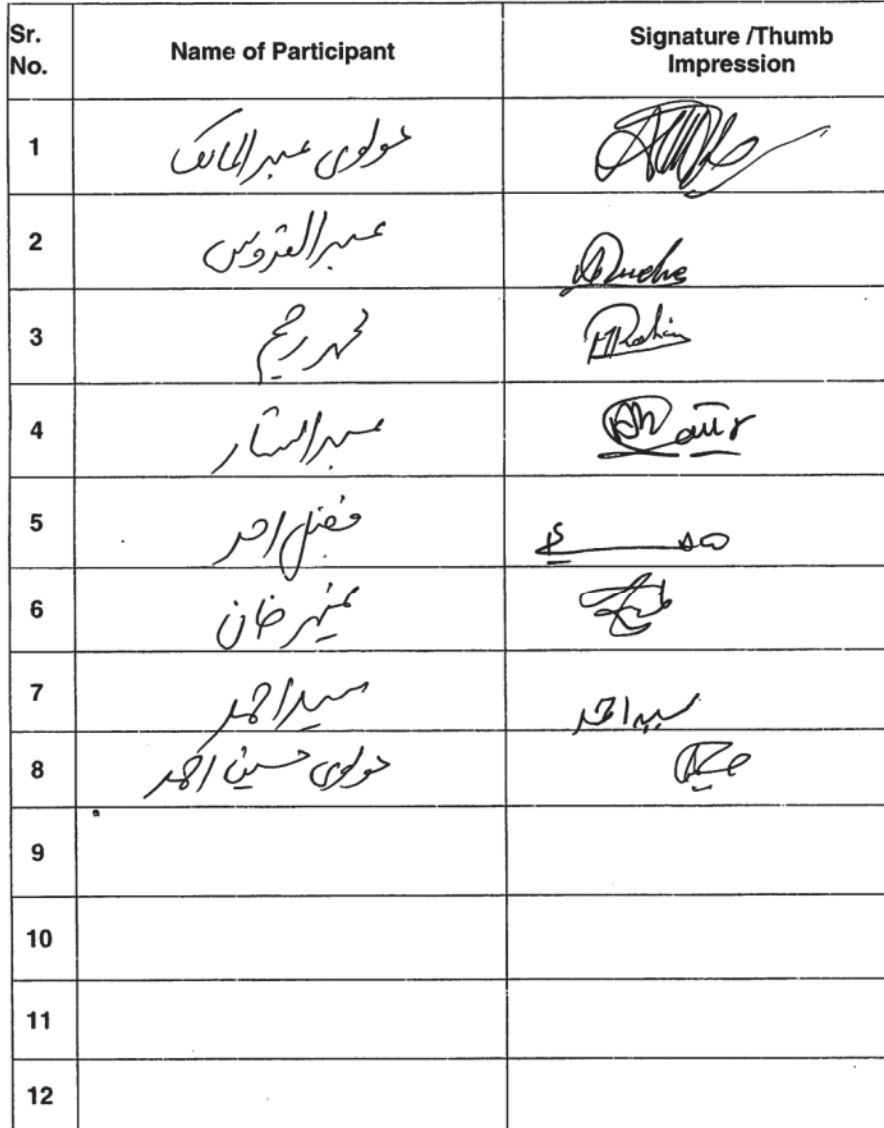 Sr. No. Name of Participant Signature /Thumb Impression
1 مولوی عبدالمالک
2 عبدالقدوس
3 محمد رحیم
4 عبدالستار
5 فضل احمد
6 خان
7 سید احمد سید احمد
8 مولوی حسین احمد
9
10
11
12